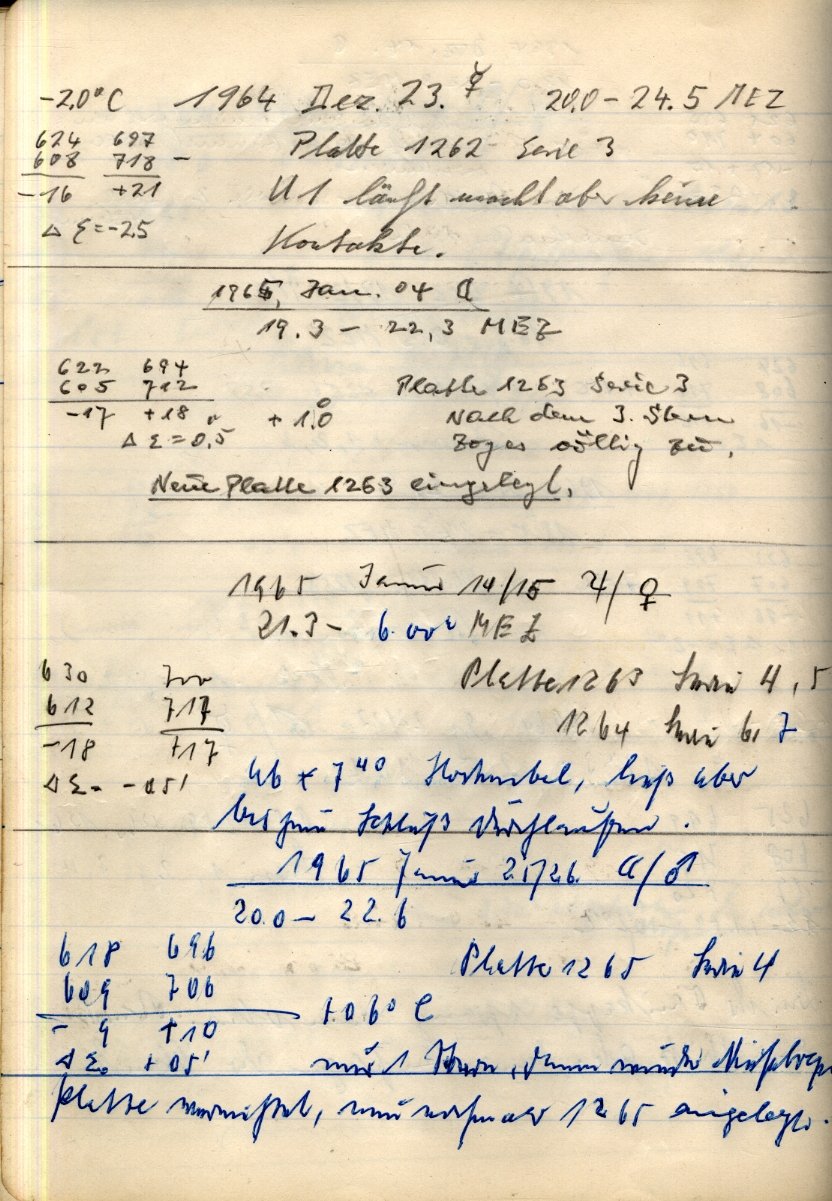 -2.0°C 1964 Dez. 23. ☿ 20.0 - 24.5 MEZ
624 697 Platte 1262 Serie 3
608 718 -
-16 +21 U1 läuft macht aber keine
Δ Σ = -2.5 Kontakte.
1965, Jan. 04 ☾
19.3 - 22,3 MEZ
622 694 Platte 1263 Serie 3
605 712
-17 +18 + 1.0° Nach dem 3. Stern
Δ Σ = 0.5 Zog es völlig zu.
Neue Platte 1263 eingelegt.
1965 Januar 14/15 ♃/♀
21.3 - 6.00 MEZ
630 700 Platte 1263 Serie 4, 5
612 717 1264 Serie 6, 7
-18 +17
Δ Σ = -0.5' Ab 7⁴⁰ Hochnebel, ließ aber
bis zum Schluß durchlaufen.
1965 Januar 25/26. ☾/♂
20.0 - 22.6
618 696 Platte 1265 Serie 4
609 706
- 9 +10 +0.6° C
Δ Σ = +0.5' nur 1 Stern, dann wurde
Platte vernichtet, neu nochmals 1265 eingelegt.